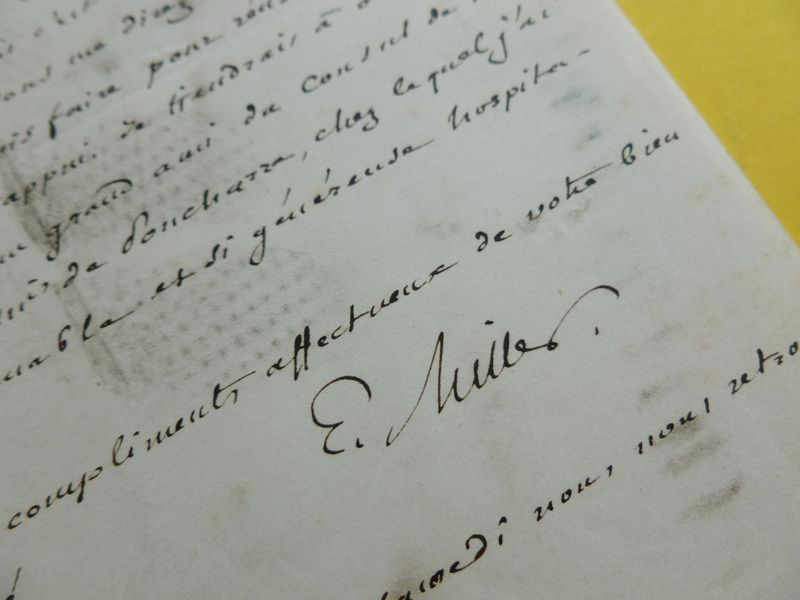 me direz
faire pour
appui. Je tiendrais à
grand ami du Consul de
de Poncharra, chez lequel j'ai
et si généreuse hospita-
compliments affectueux de votre bien
E. Miller.
samedi nous nous retro